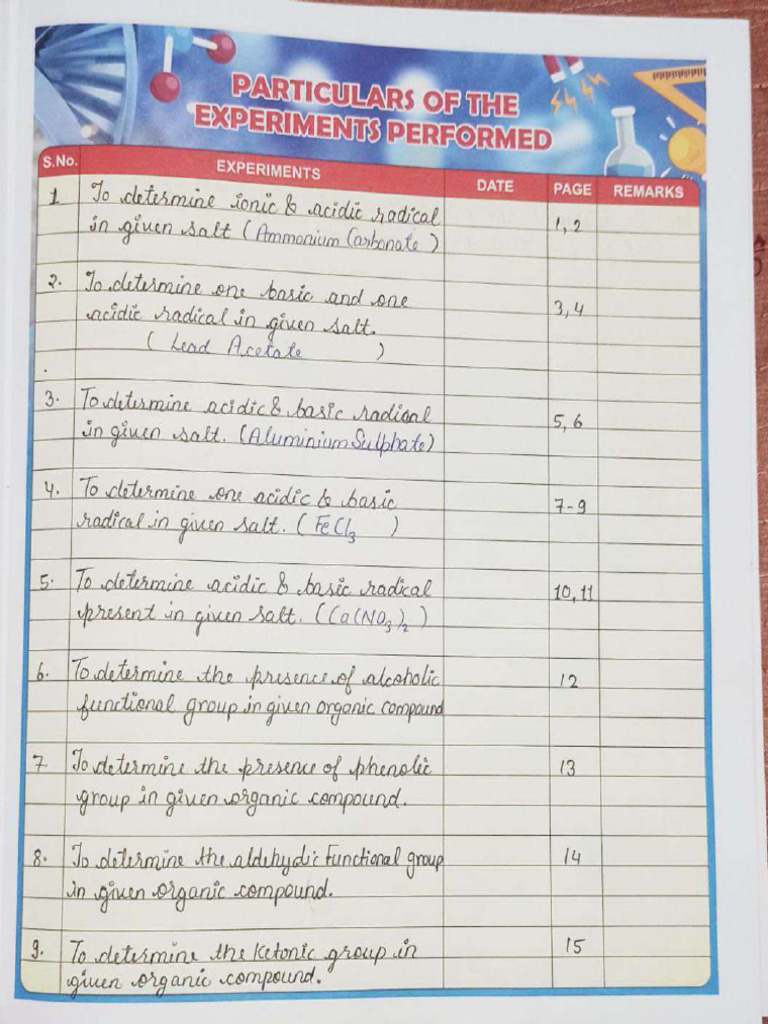 PARTICULARS OF THE
EXPERIMENTS PERFORMED
S.No. EXPERIMENTS DATE PAGE REMARKS
1 To determine ionic & acidic radical
in given salt (Ammonium Carbonate ) 1, 2
2. To determine one basic and one
acidic radical in given salt. 3, 4
( Lead Acetate )
3. To determine acidic & basic radical
in given salt. (Aluminium Sulphate) 5, 6
4. To determine one acidic & basic
radical in given salt. ( FeCl3 ) 7-9
5. To determine acidic & basic radical
present in given salt. (Ca(NO3)2 ) 10, 11
6. To determine the presence of alcoholic
functional group in given organic compound 12
7 To determine the presence of phenolic
group in given organic compound. 13
8. To determine the aldehydic Functional group
in given organic compound. 14
9. To determine the Ketonic group in
given organic compound. 15